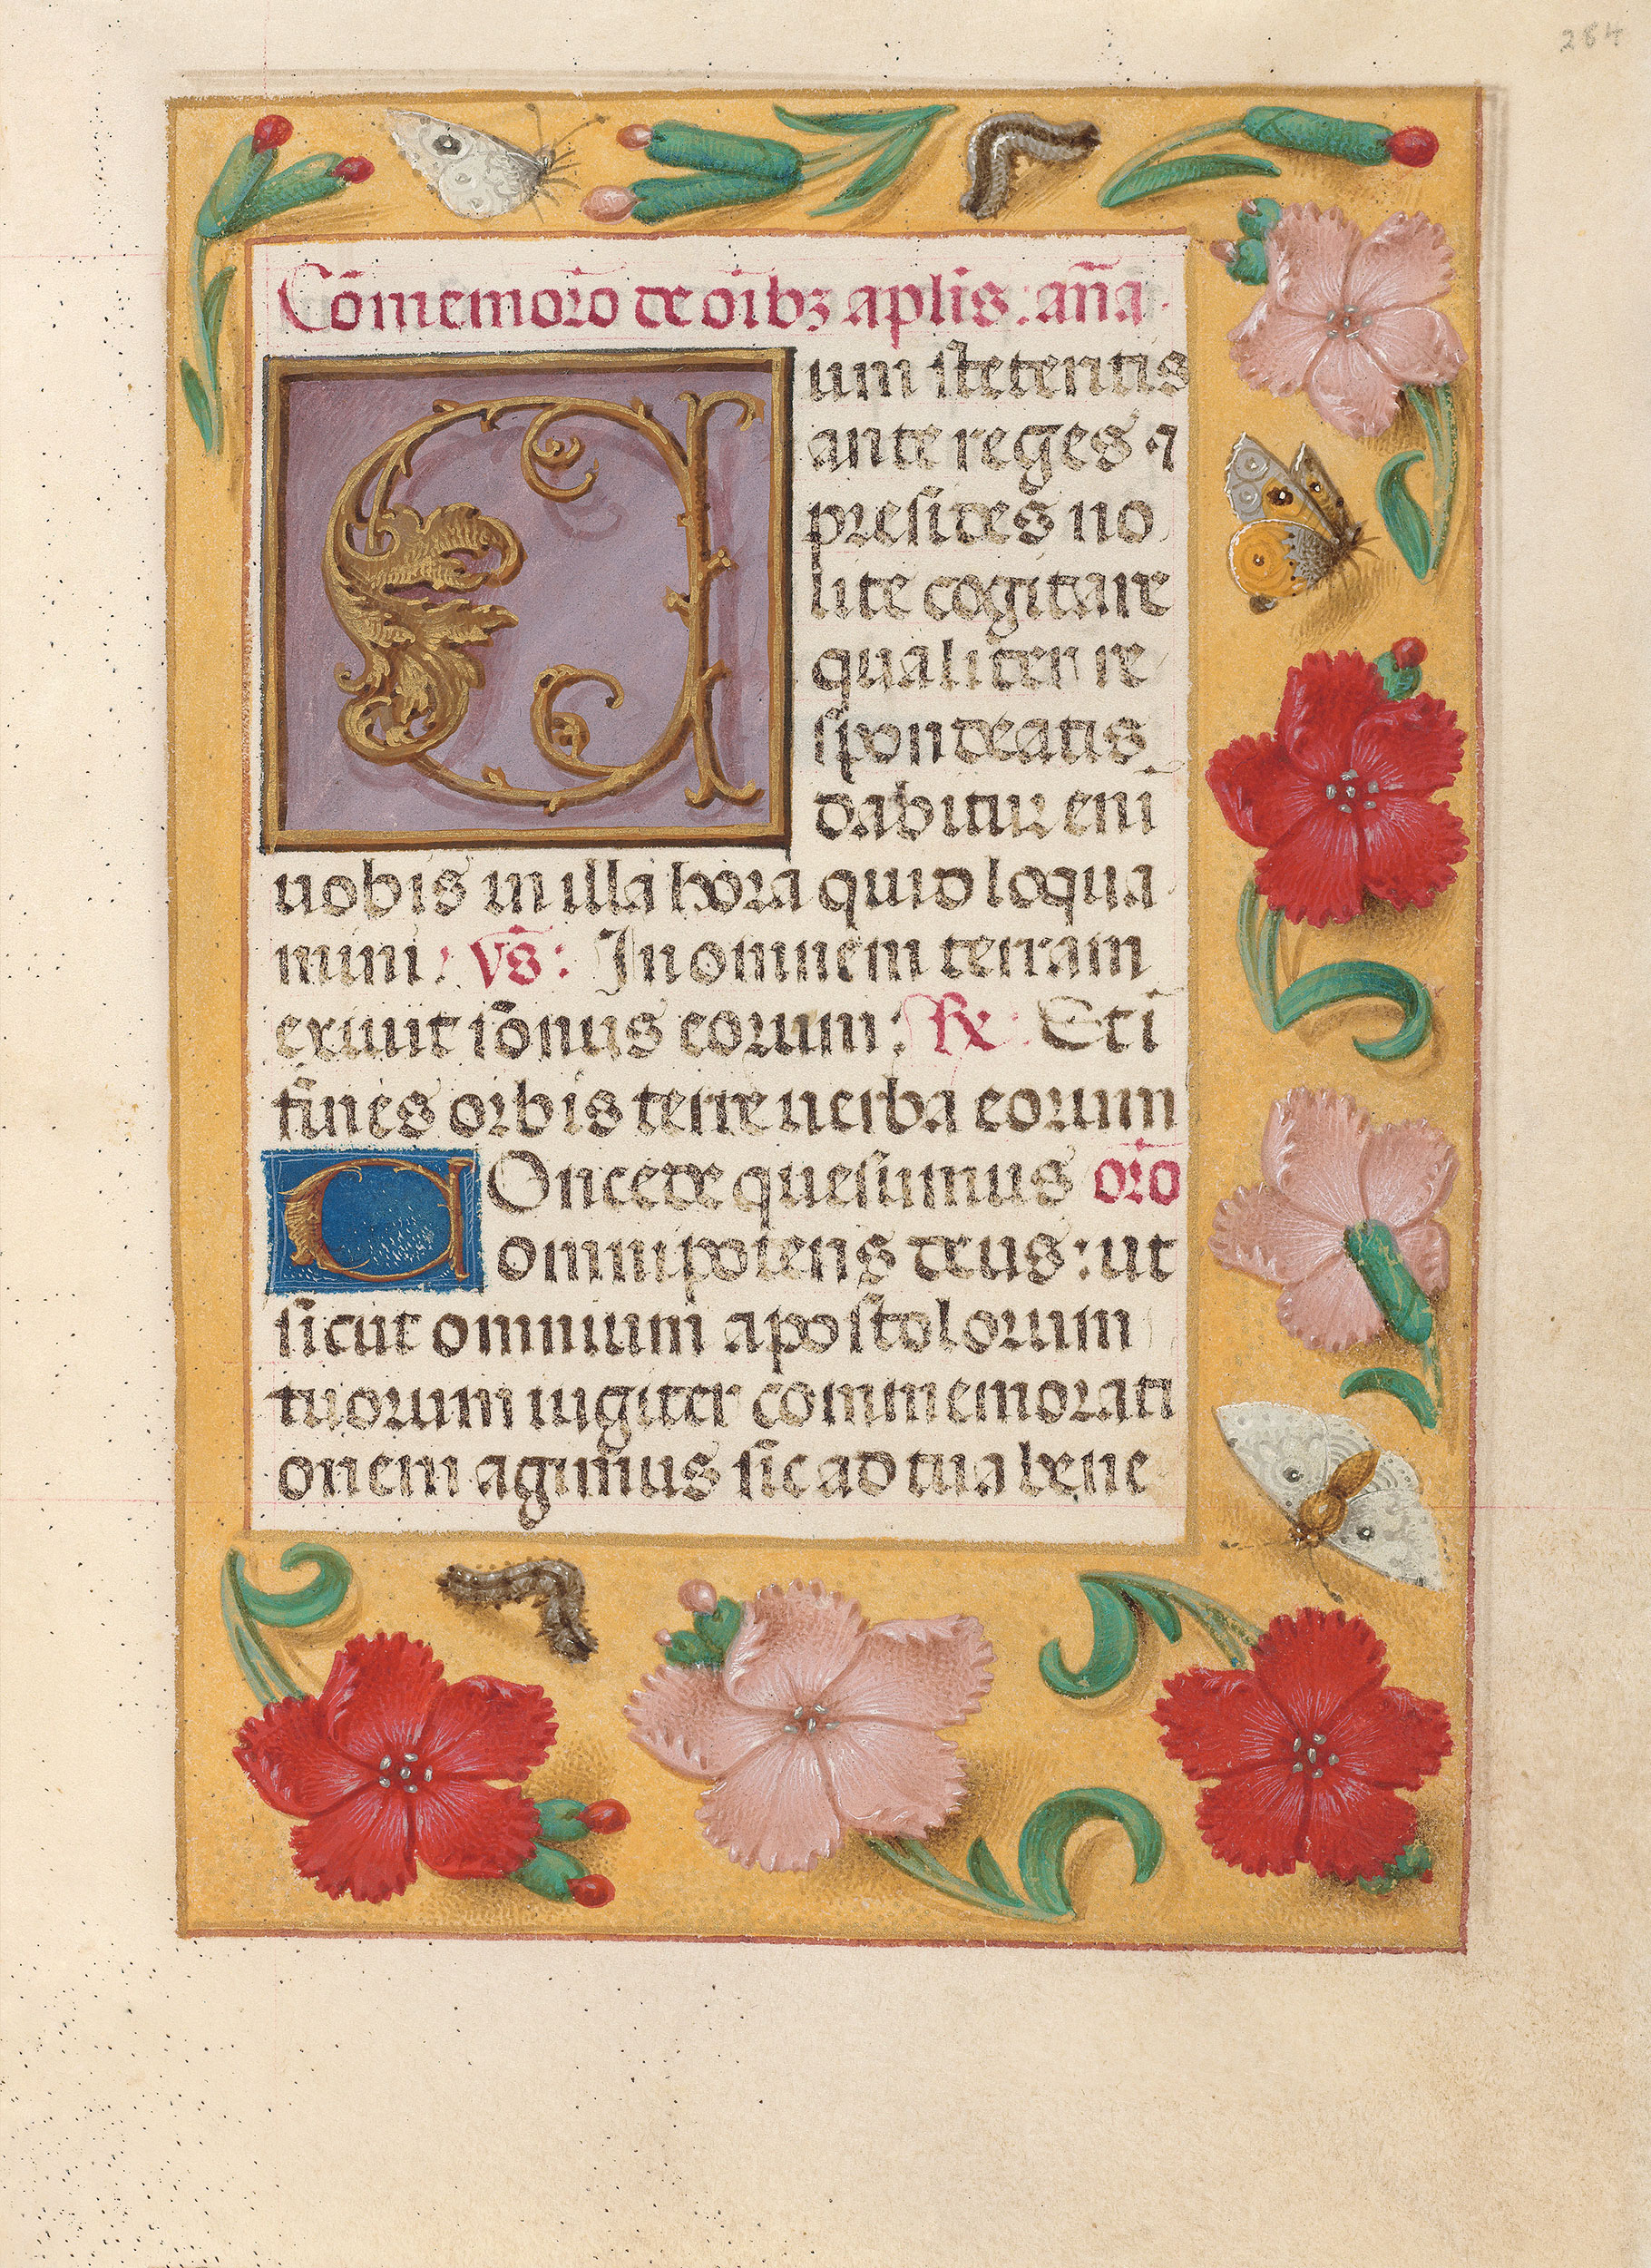 284
Cōmemorō de oībꝫ aplīs: anā.
Cum steteritis
ante reges ⁊
presidēs no
lite cogitare
qualiter re
spondeatis
dabitur eni
uobis in illa hora quid loqua
mini: vs̄: In omnem terram
exiuit sonus eorum: ℟: Et ī
fines orbis terre uerba eorum
COncede quesumus orō
omnipotens deus: ut
sicut omnium apostolorum
tuorum iugiter commemorati
onem agimus sic ad tua bene